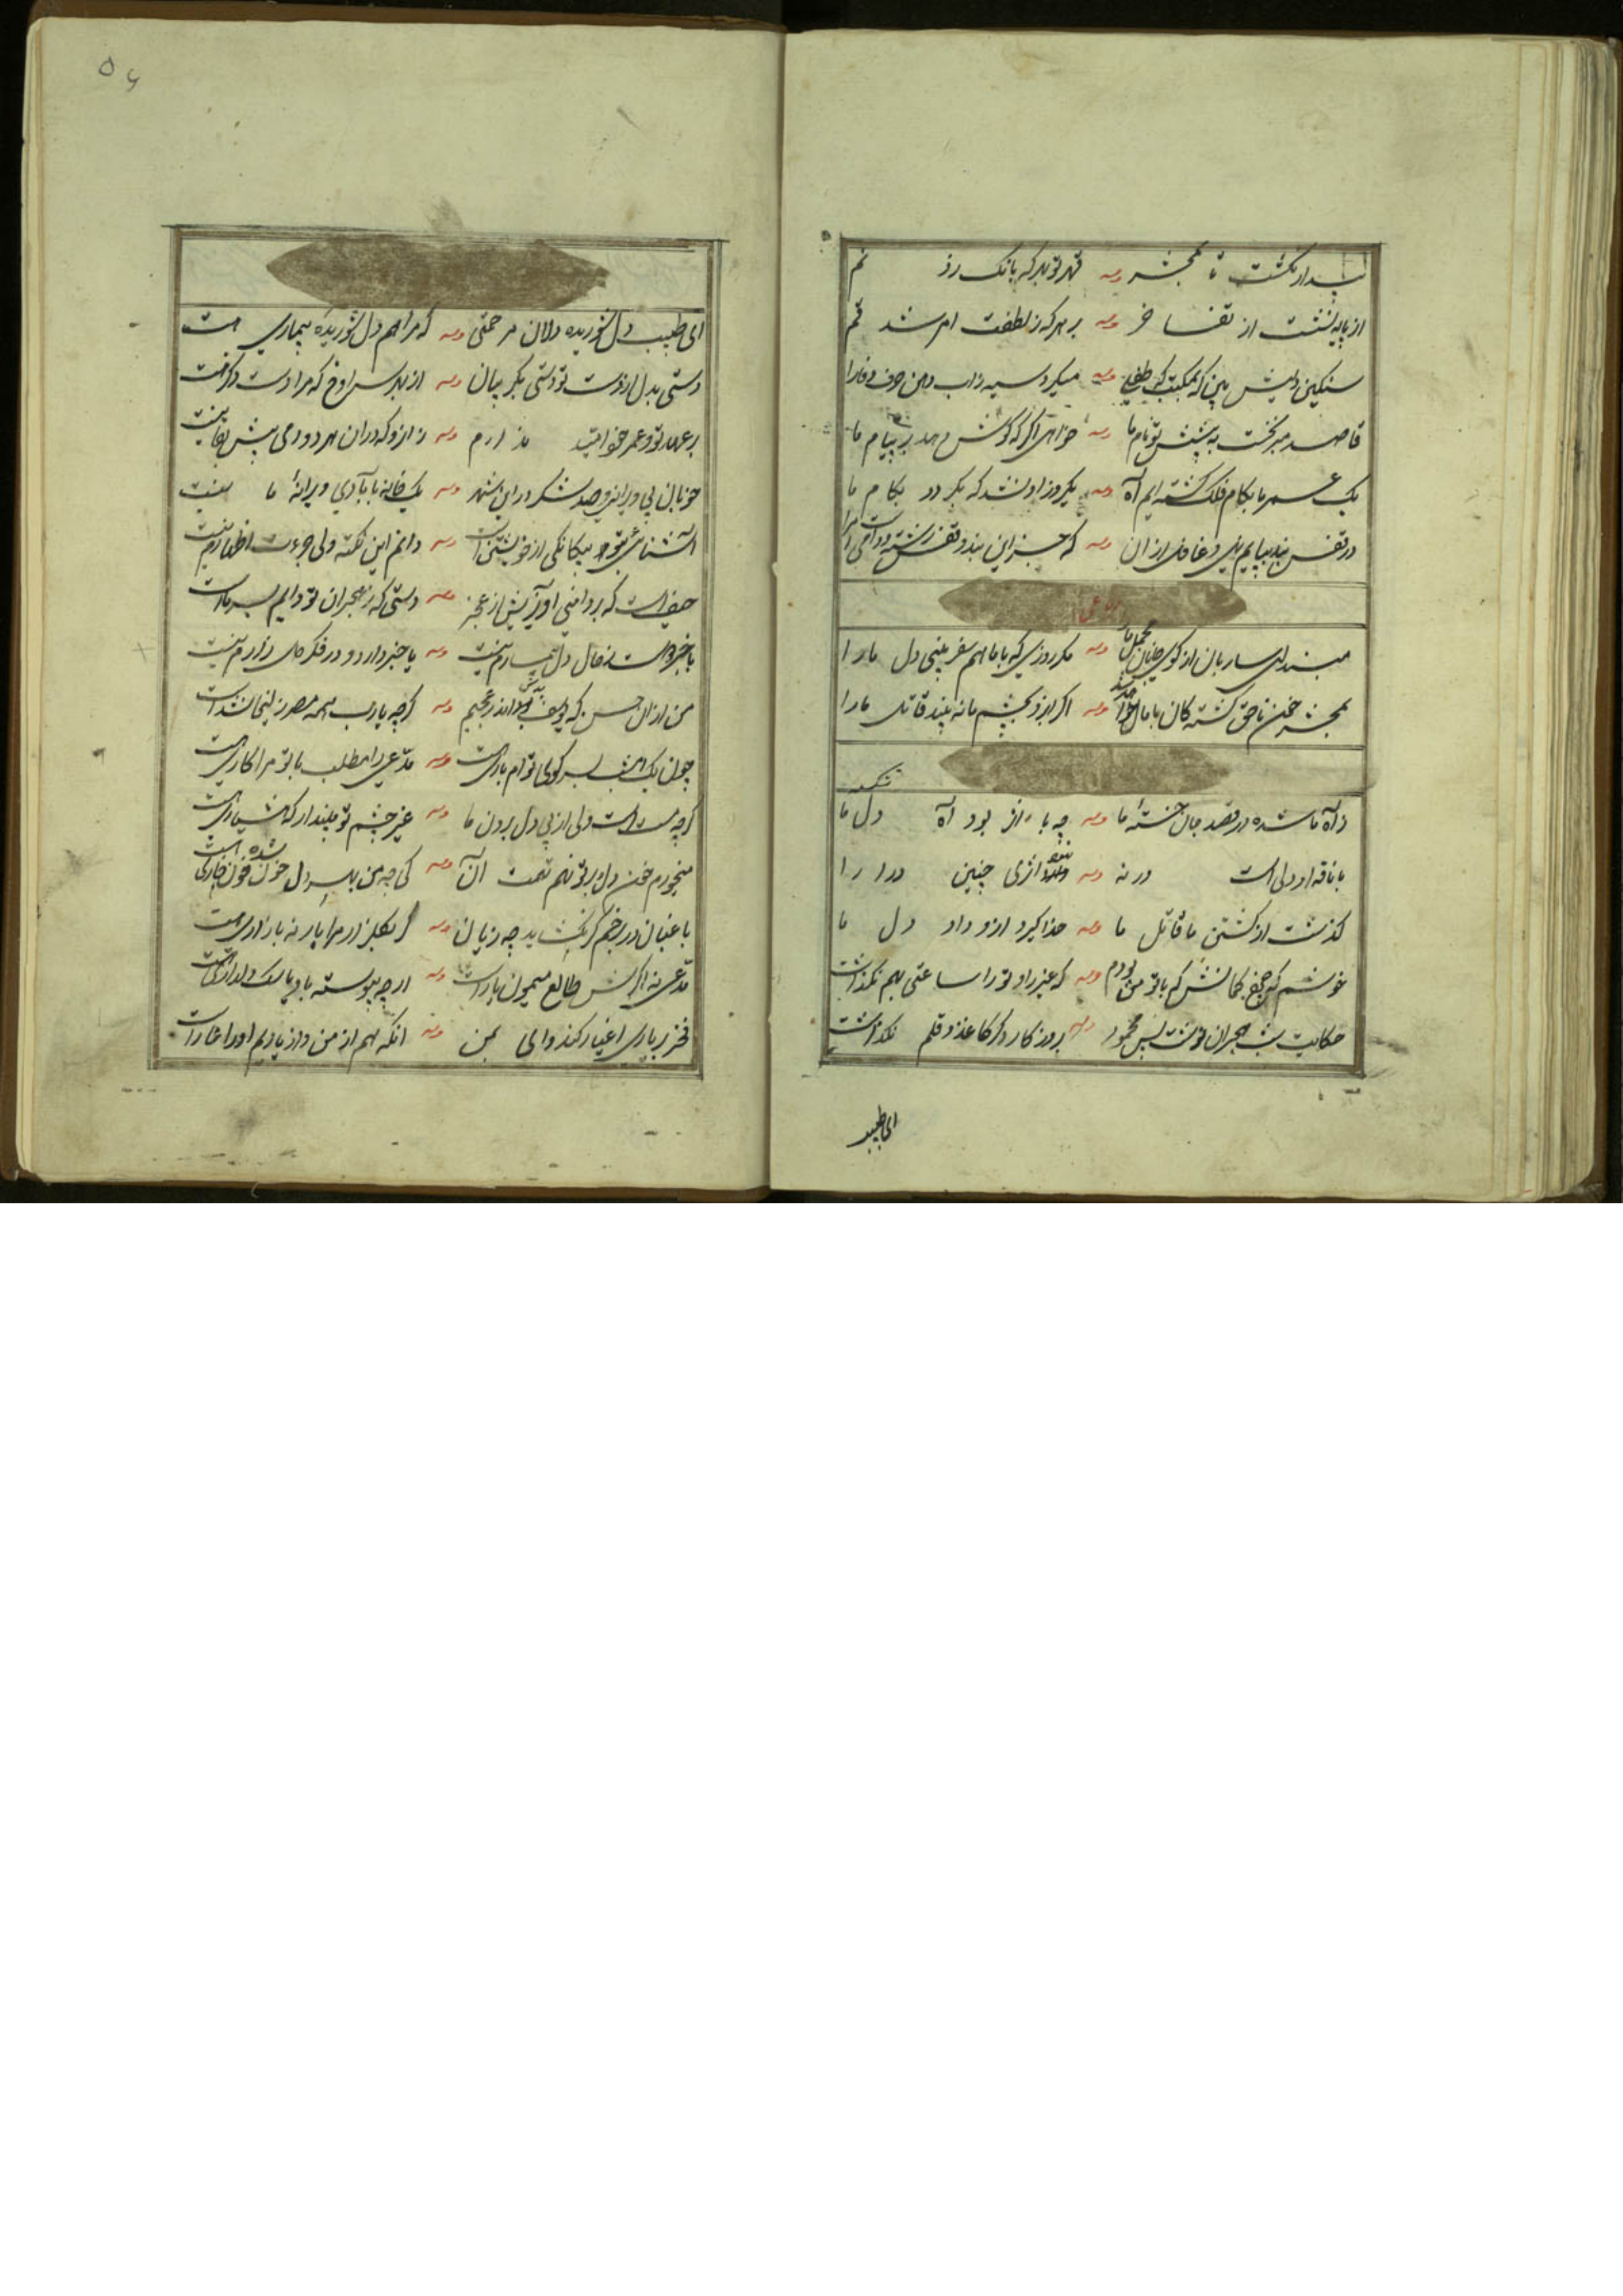 بیدار نگشت تا بمحشر وله قهر تو بهر که بانک زد نم
از پا ننشست از تفاخر وله بر هر که ز لطفت امر شد قم
سنکین دلیش بین که بمکتب که طفلی وله میکرد سیه ز اب دهن حرف وفا را
قاصد میر بخت به پیشش تو نام ما وله خواهی اکر که کوش دهد بر پیام ما
یک عمر ما بکام فلک کشته ایم آه وله یکروز او نشد که بکردد بکام ما
در قفس بند بپایم نهی و غافل ازان وله که جز این بند و قفس رشته و دامی است مرا
رباعی
مبند ای ساربان از کوی جانان محمل ما را وله مکر روزی که با ما همسفر بینی دل ما را
بمحشر خون ناحق کشته کان پامال خواهد شد وله اکر ایزد بچشم ما نه بیند قاتل ما را
ز آه ما شده در قصد جان خسته ما وله چه با اثر بود آه دل ما
با ناقه او دلی است ورنه وله نبود اثری چنین درا را
کذشت از کشتن ما قاتل ما وله خدا کیرد ازو داد دل ما
خوشم که چرخ کمانش کم با تو من بودم وله که غیر را و تو را ساعتی بهم نکذاشت
حکایت شب هجران نوشت بس محمود وله بروزکار دکر کاغذ و قلم نکذاشت
ای طبیب
۵۶
ای طبیب دل شوریده دلان مرحمتی وله که مرا هم دل شوریده بیماری هست
دستی بدل از دست تو دستی بکریبان وله از بهر سراغ که مرا دست دکر نیست
بر عهد تو و عمر خود امید ندارم وله ز انرو که دران هر دو دمی بیش بقا نیست
خوبان پی ویرانی و صد شکر در این شهر وله یک خانه بآبادی ویرانهٔ ما نیست
آشنائی بتو بیکانکی از خویشتن است وله دانم این نکته ولی جرءت اظهارم نیست
حیف است که بر دامنی آویزیش از عجز وله دستی که ز هجران تو دایم بسر ماست
با خبر هست ز حال دل بیمارم نیست وله یا خبر دارد و در فکر دل زارم نیست
من از ان حسن که یوسف وله کرچه یارب همه مصر زلیخا شده است
چون یک امشب بسر کوی توام باری است وله مدعی را مطلب با تو مرا کاری است
کرچه مست است ولی از پی دل بردن ما وله غیر چشم تو مپندار که هشیاری است
میخورم خون دل و بر تو نهم تهمت آن وله کی چه من بهر دل خون شده خون خواری است
باغبان در برخم کر نکشاید چه زیان وله کر بکلزار مرا یار نه بازاری هست
مدعی نه اکرش طالع میمون یار است وله از چه پیوسته باو یار من و دلدار است
فخر بر یاری اغیار کند وای بمن وله انکه هم از من و از یاریم او را عار است